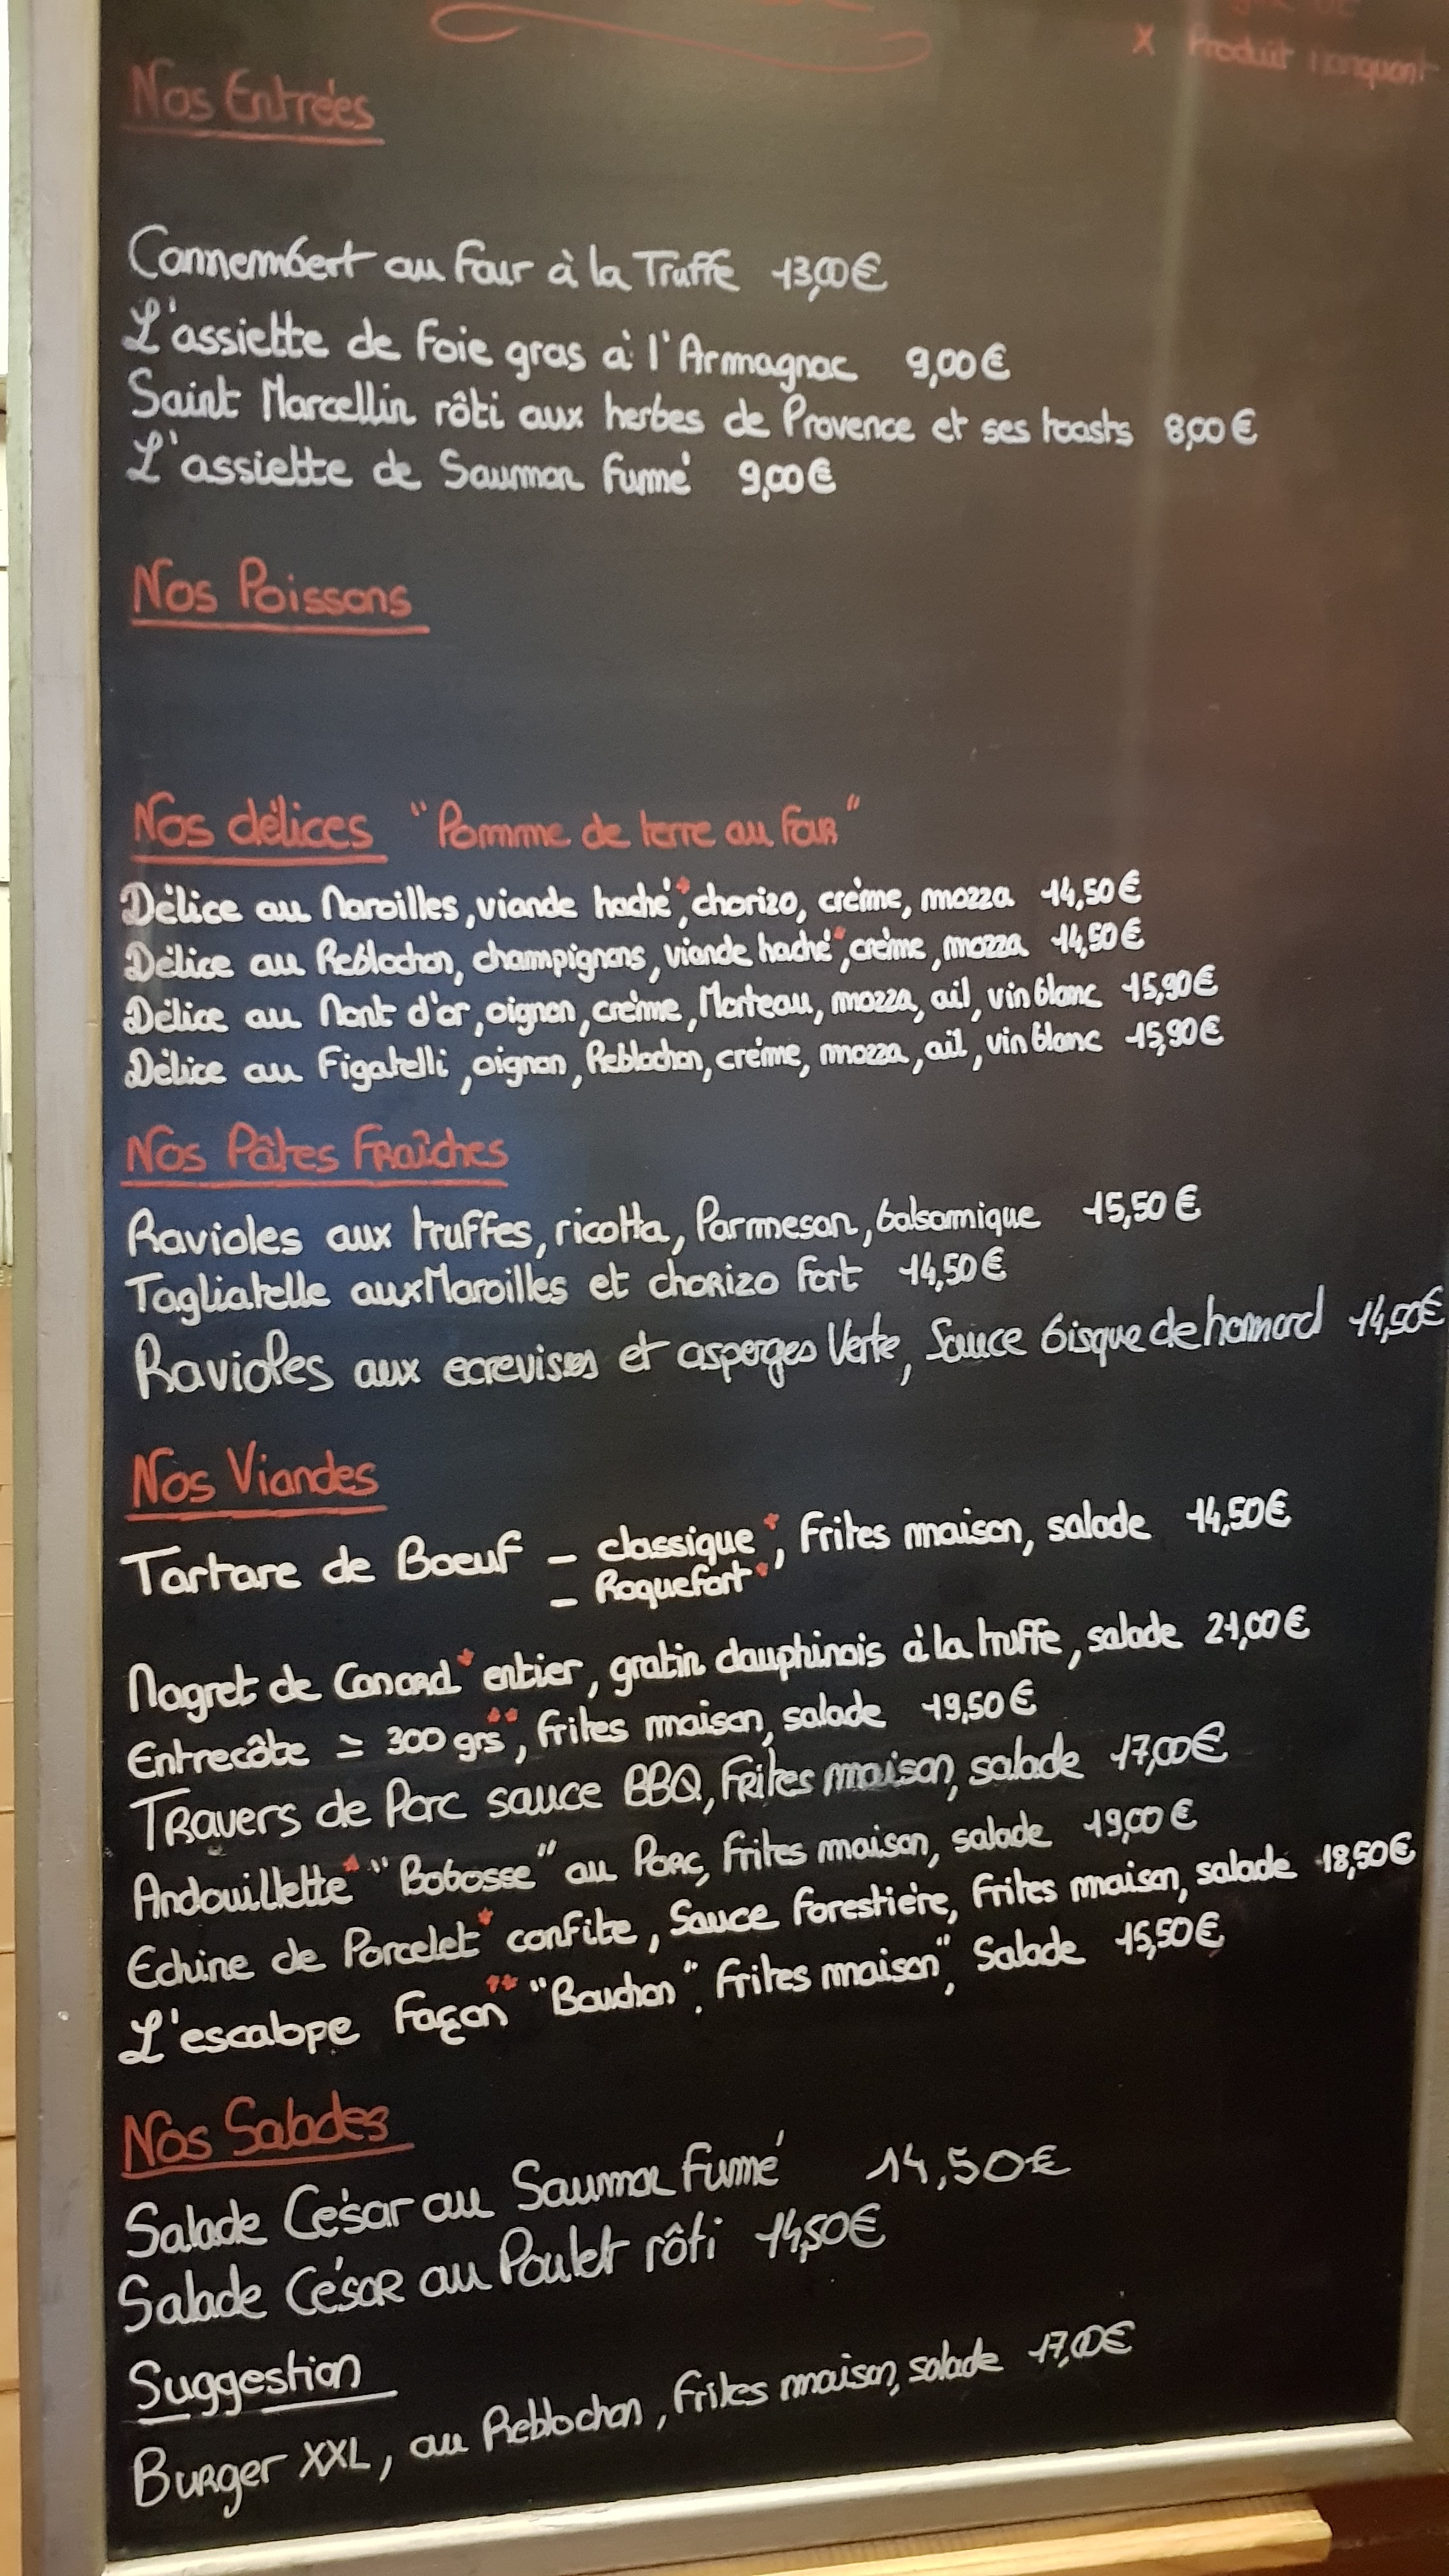 X Produit manquant
Nos Entrées
Cannembert au Four à la Truffe 13,00€
L'assiette de Foie gras à l'Armagnac 9,00€
Saint Marcellin rôti aux herbes de Provence et ses toasts 8,00€
L'assiette de Saumon Fumé 9,00€
Nos Poissons
Nos délices "Pomme de terre au Four"
Délice au Maroilles, viande haché*, chorizo, crème, mozza 14,50€
Délice au Reblochon, champignons, viande haché*, crème, mozza 14,50€
Délice au Mont d'or, oignon, crème, Morteau, mozza, ail, vin blanc 15,90€
Délice au Figatelli, oignon, Reblochon, crème, mozza, ail, vin blanc 15,90€
Nos Pâtes Fraîches
Ravioles aux truffes, ricotta, Parmesan, balsamique 15,50€
Tagliatelle aux Maroilles et chorizo Fort 14,50€
Ravioles aux ecrevisses et asperges Verte, Sauce bisque de homard 14,50€
Nos Viandes
Tartare de Boeuf - classique*, Frites maison, salade 14,50€
- Roquefort*
Magret de Canard* entier, gratin dauphinois à la truffe, salade 21,00€
Entrecôte ≃ 300 grs**, frites maison, salade 19,50€
Travers de Porc sauce BBQ, Frites maison, salade 17,00€
Andouillette* "Bobosse" au Porc, Frites maison, salade 19,00€
Echine de Porcelet* confite, Sauce Forestière, Frites maison, salade 18,50€
L'escalope Façon** "Bouchon", Frites maison", Salade 15,50€
Nos Salades
Salade César au Saumon Fumé 14,50€
Salade César au Poulet rôti 14,50€
Suggestion
Burger XXL, au Reblochon, Frites maison, salade 17,00€